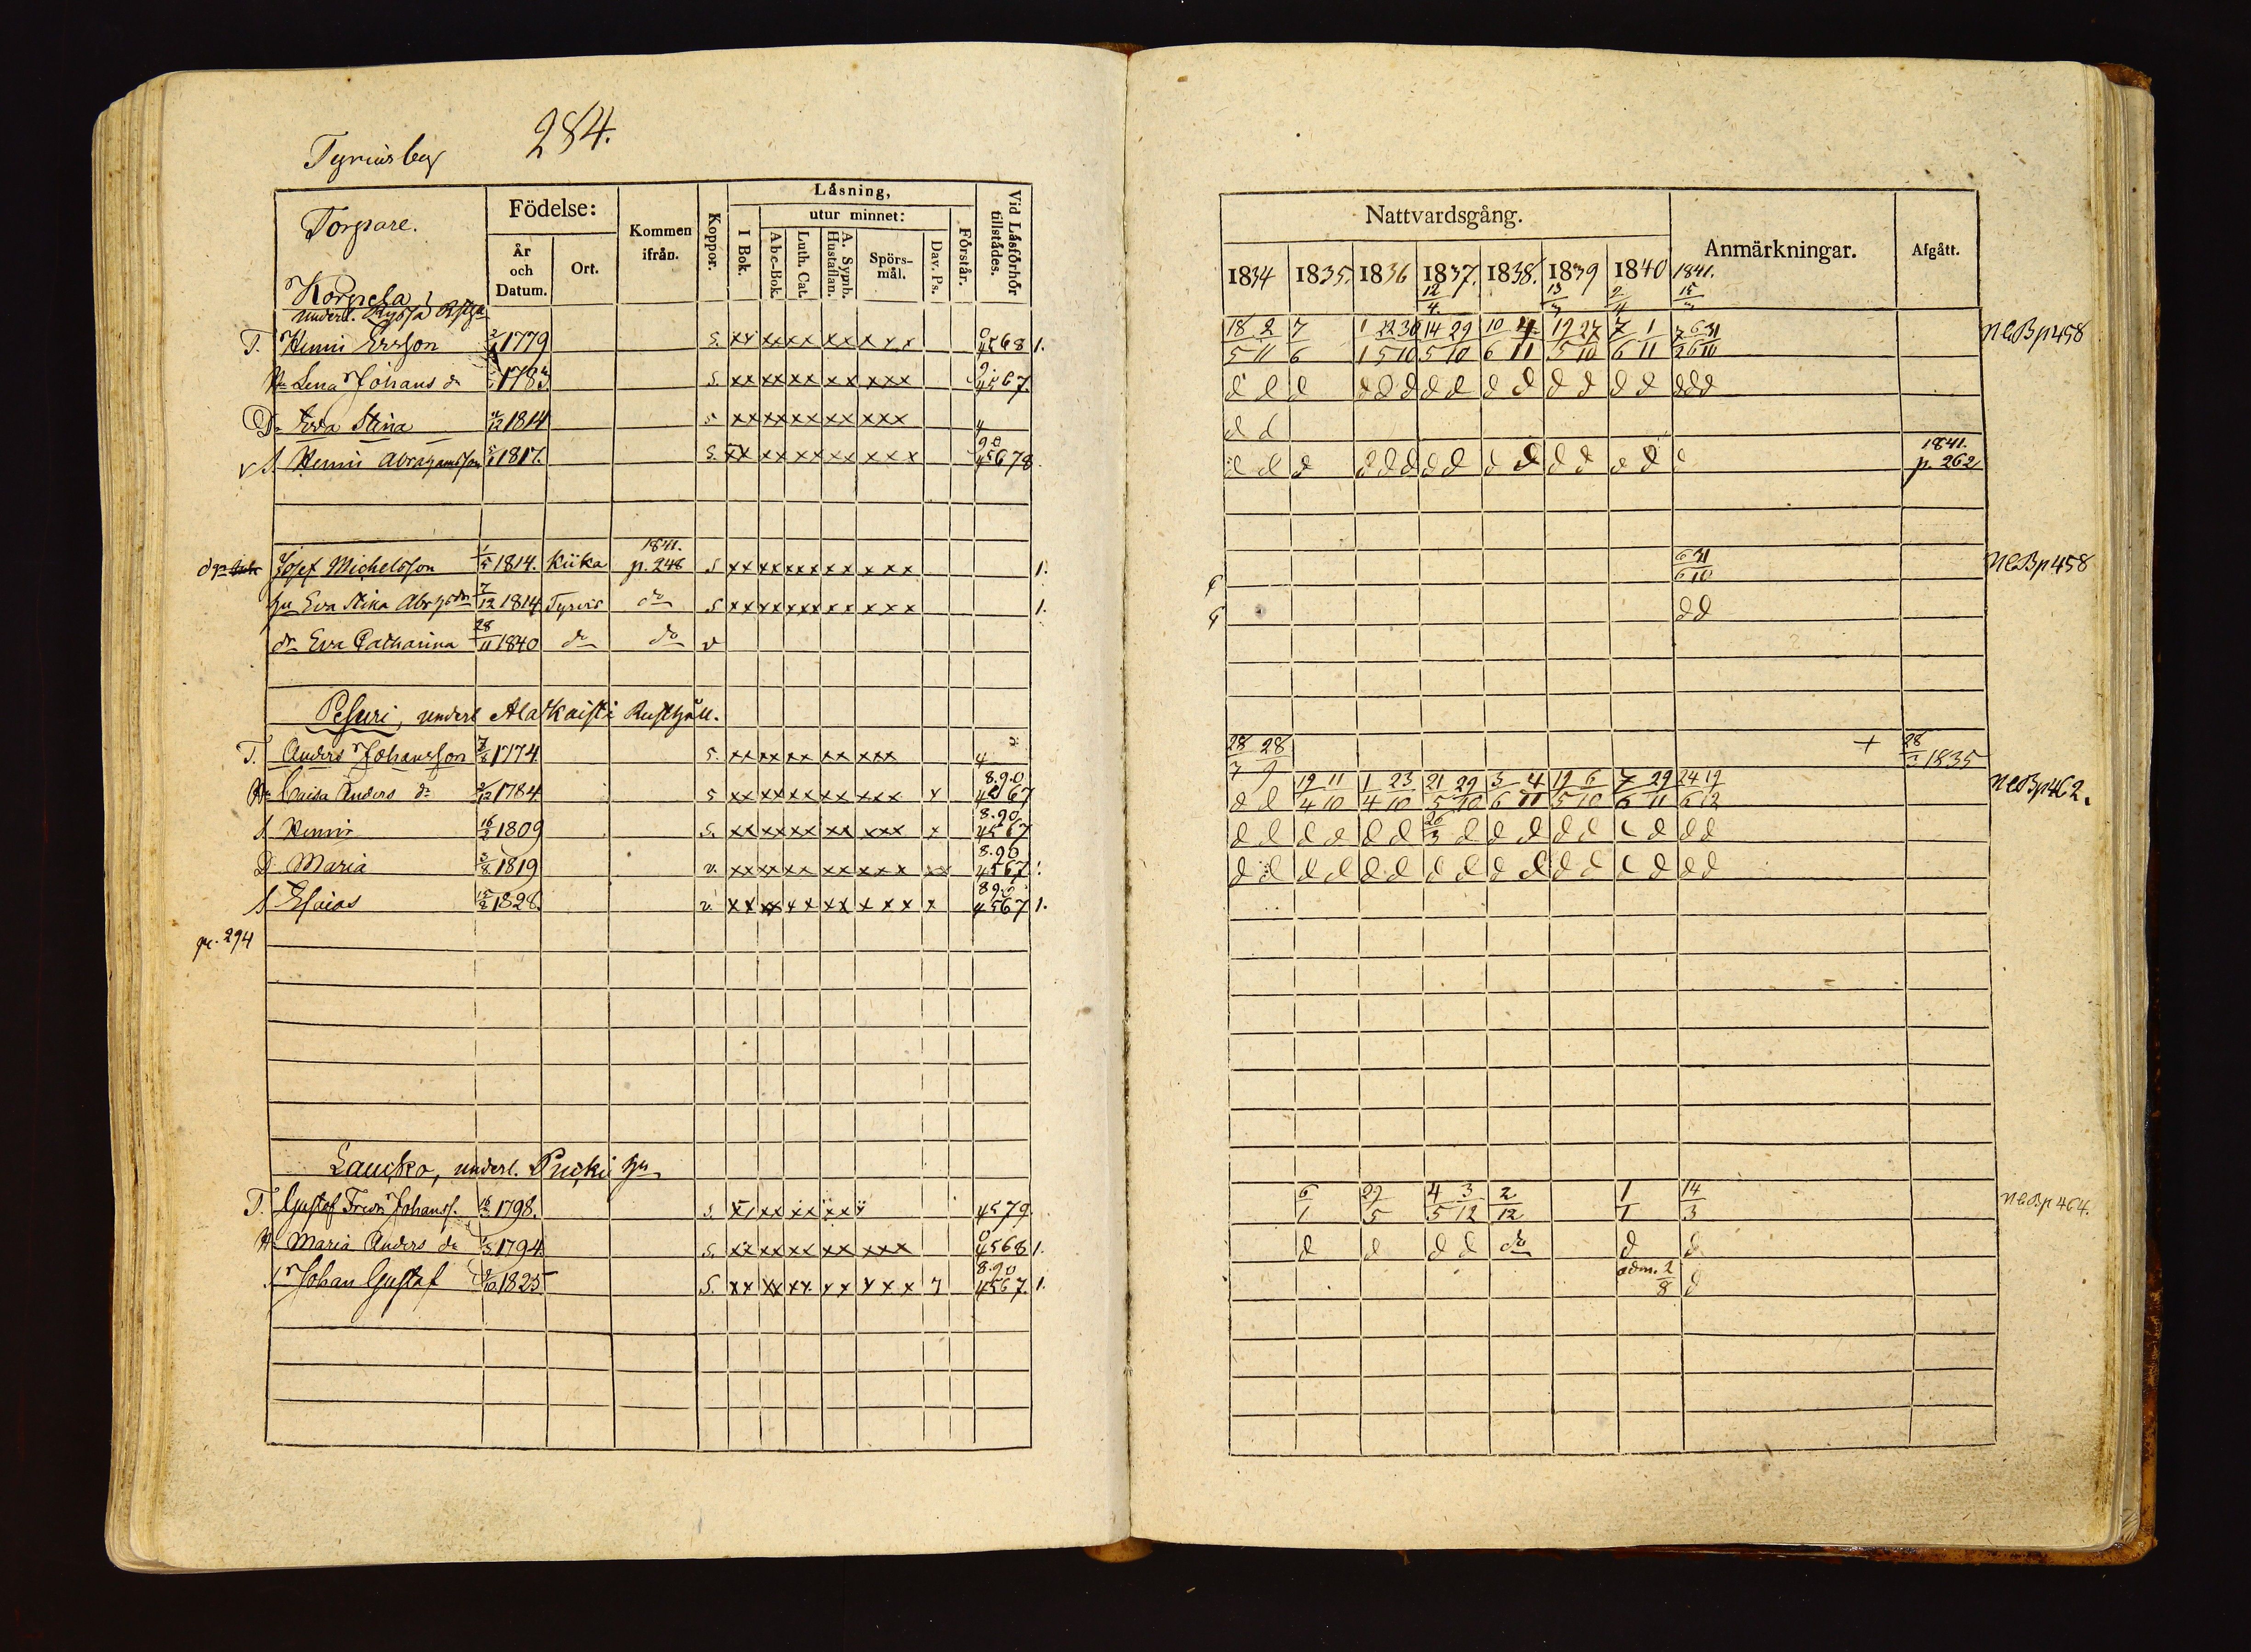 284.
Tyrvisby
Torpare.
Födelse:
År och Datum.
Ort.
Kommen ifrån.
Koppor.
Läsning,
I Bok.
utur minnet:
Abc-Bok.
Luth. Cat.
A. Symb. Hustaflan.
Spörs-mål.
Dav. Ps.
Förstår.
Vid Läsförhör tillstädes.
Korpela
underl.
T. Henric Ersson 1779 S. xx xx xx xx xxx 4568 1.
Hu Lena Johans dr 1783. S. xx xx xx xx xxx 4567.
Dr Eva Stina 1814 s xx xx xx xx xxx 4
S. Henric Abrahamsson 1817. S. xx xx xx xx xxx 45678.
1841.
Josef Michelsson 1/5 1814. Kiika p. 248 S xx xx xx xx xxx 1.
hu Eva Stina 7/12 1814 Tyrvis do S xx xx xx xx xxx 1.
dr Eva Catharina 28/11 1840 do do v
Pesuri, underl Ala Kaisti Rusthåll.
T. Anders Johansson 7/8 1774 S. xx xx xx xx xxx 4
8.9.0
Hu Caisa Anders dr 1784 S xx xx xx xx xxx x 4567
8.90
S Henric 1809 S. xx xx xx xx xxx x 4567
8.90
D Maria 1819 v. xx xx xx xx xxx xx 4567
890
S Esaias 1828. v. xx xx xx xx xxx x 4567 1.
p. 294
Laucko, underl. Pucki
T. Gustaf Fredr Johanss. 1798. S. 4579.
Hu Maria Anders dr 1794 S. xx xx xx xx xxx 4568 1.
8.90
S Johan Gustaf 1825 S. xx xx xx xx xxx 4567. 1.
Nattvardsgång.
Anmärkningar.
Afgått.
1834 1835. 1836 1837. 1838. 1839 1840 1841.
12/4 13 2/4 15
18/5 2/11 7/6 1/1 22/5 30/10 14/5 29/10 10/6 4/11 19/5 27/10 7/6 1/11 6/6 31/10 NCBp458
d d d d d d d d d d d d d d d d d
d d
1841.
d d d d d d d d d d d d d d d p. 262
6/6 31/10 NCBp458
d d
28/7 28/9 + 28 1835
d d 19/4 11/10 1/4 23/10 21/5 29/10 3/6 4/11 19/5 6/10 7/6 29/11 24/6 19/12 NCBp462.
d d d d d d 26/3 d d d d d d d d d
d d d d d d d d d d d d d d d d
6/1 29/5 4/5 3/12 2/12 1/1 14/3 NCBp464.
d d d d do d d
adm. 2/8 d